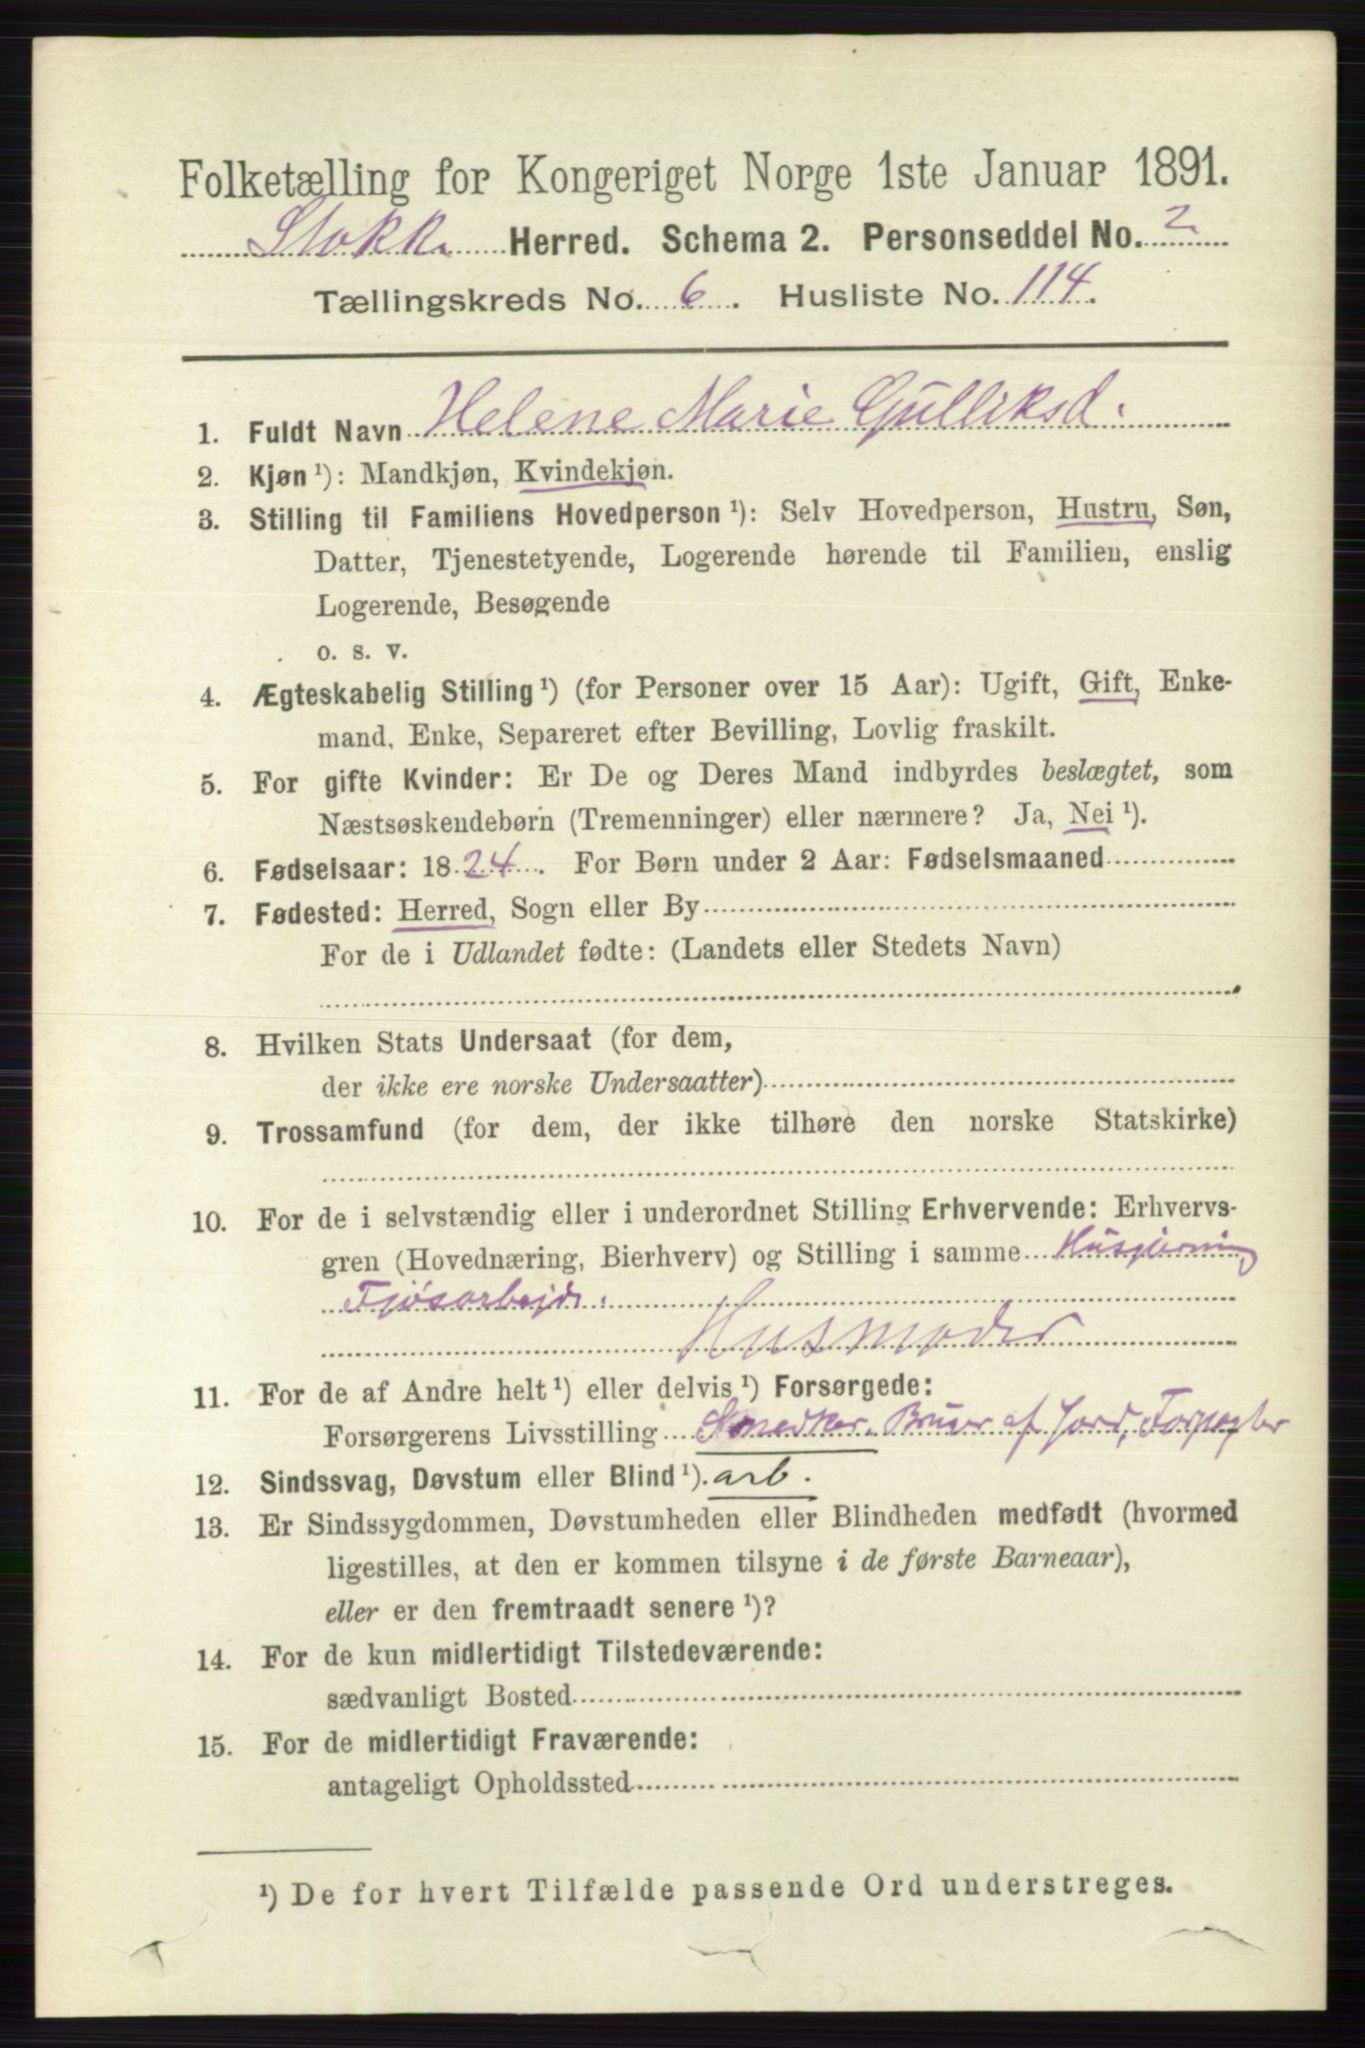 Folketælling for Kongeriget Norge 1ste Januar 1891.
Stokke Herred. Schema 2. Personseddel No. 2
Tællingskreds No. 6. Husliste No. 114.
1. Fuldt Navn Helene Marie Gulliksd.
2. Kjøn ¹): Mandkjøn, Kvindekjøn.
3. Stilling til Familiens Hovedperson ¹): Selv Hovedperson, Hustru, Søn,
Datter, Tjenestetyende, Logerende hørende til Familien, enslig
Logerende, Besøgende
o. s. v.
4. Ægteskabelig Stilling ¹) (for Personer over 15 Aar): Ugift, Gift, Enke-
mand, Enke, Separeret efter Bevilling, Lovlig fraskilt.
5. For gifte Kvinder: Er De og Deres Mand indbyrdes beslægtet, som
Næstsøskendebørn (Tremenninger) eller nærmere? Ja, Nei ¹).
6. Fødselsaar: 1824. For Børn under 2 Aar: Fødselsmaaned
7. Fødested: Herred, Sogn eller By
For de i Udlandet fødte: (Landets eller Stedets Navn)
8. Hvilken Stats Undersaat (for dem,
der ikke ere norske Undersaatter)
9. Trossamfund (for dem, der ikke tilhøre den norske Statskirke)
10. For de i selvstændig eller i underordnet Stilling Erhvervende: Erhvervs-
gren (Hovednæring, Bierhverv) og Stilling i samme Husgjerning
Fjøsarbejde.
Husmoder
11. For de af Andre helt ¹) eller delvis ¹) Forsørgede:
Forsørgerens Livsstilling Snedker. Bruger af Jord, Forpagter
12. Sindssvag, Døvstum eller Blind ¹). arb.
13. Er Sindssygdommen, Døvstumheden eller Blindheden medfødt (hvormed
ligestilles, at den er kommen tilsyne i de første Barneaar),
eller er den fremtraadt senere ¹)?
14. For de kun midlertidigt Tilstedeværende:
sædvanligt Bosted
15. For de midlertidigt Fraværende:
antageligt Opholdssted
¹) De for hvert Tilfælde passende Ord understreges.